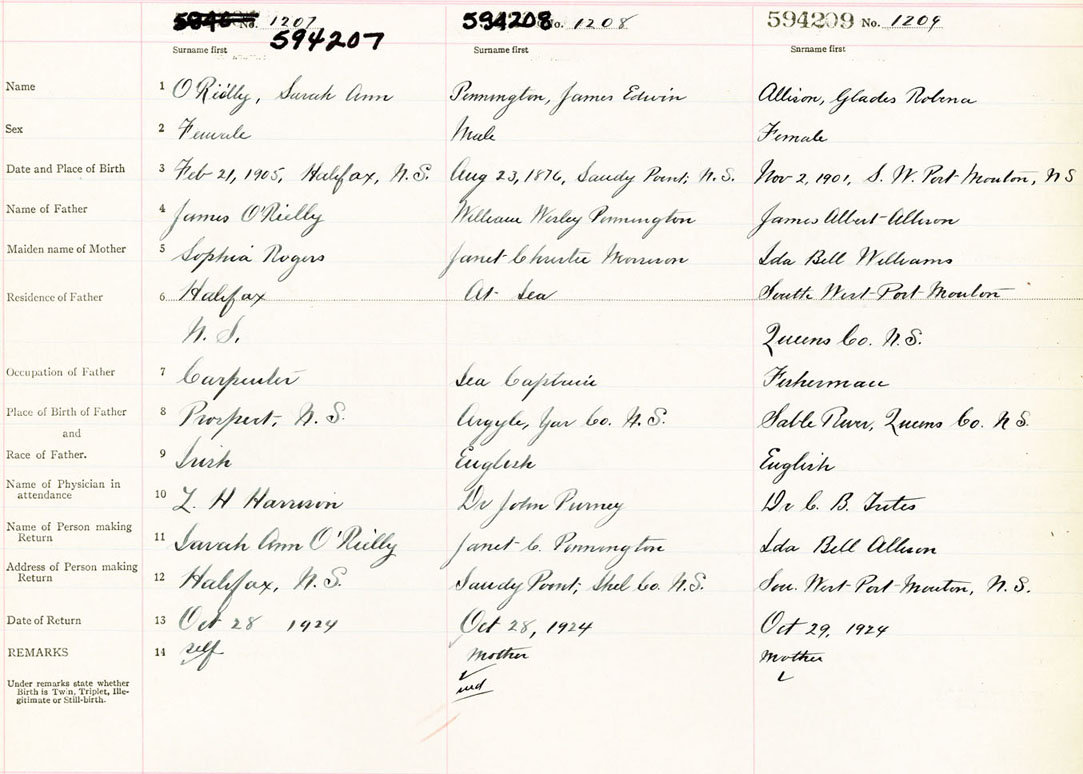 No. 1207 594208 No. 1208 594209 No. 1209
594207
Surname first Surname first Surname first
Name 1 O'Rielly, Sarah Ann Pennington, James Edwin Allison, Glades Robena
Sex 2 Female Male Female
Date and Place of Birth 3 Feb 21, 1905, Halifax, N.S. Aug 23, 1876, Sandy Point, N.S. Nov 2, 1901, S. W. Port Mouton, N S
Name of Father 4 James O'Rielly William Wesley Pennington James Albert Allison
Maiden name of Mother 5 Sophia Rogers Janet Christie Morrison Ida Bell Williams
Residence of Father 6 Halifax At Sea South West Port Mouton
N. S. Queens Co. N.S.
Occupation of Father 7 Carpenter Sea Captain Fisherman
Place of Birth of Father 8 Prospect, N.S. Argyle, Yar Co. N.S. Sable River, Queens Co. N S.
and
Race of Father. 9 Irish English English
Name of Physician in
attendance 10 L. H Harrison Dr John Purney Dr C. B. Trites
Name of Person making
Return 11 Sarah Ann O'Rielly Janet C. Pennington Ida Bell Allison
Address of Person making
Return 12 Halifax, N.S. Sandy Point, Shel Co. N.S. Sou. West Port Mouton, N.S.
Date of Return 13 Oct 28 1924 Oct 28, 1924 Oct 29, 1924
REMARKS 14 self mother mother
Under remarks state whether
Birth is Twin, Triplet, Ille-
gitimate or Still-birth.